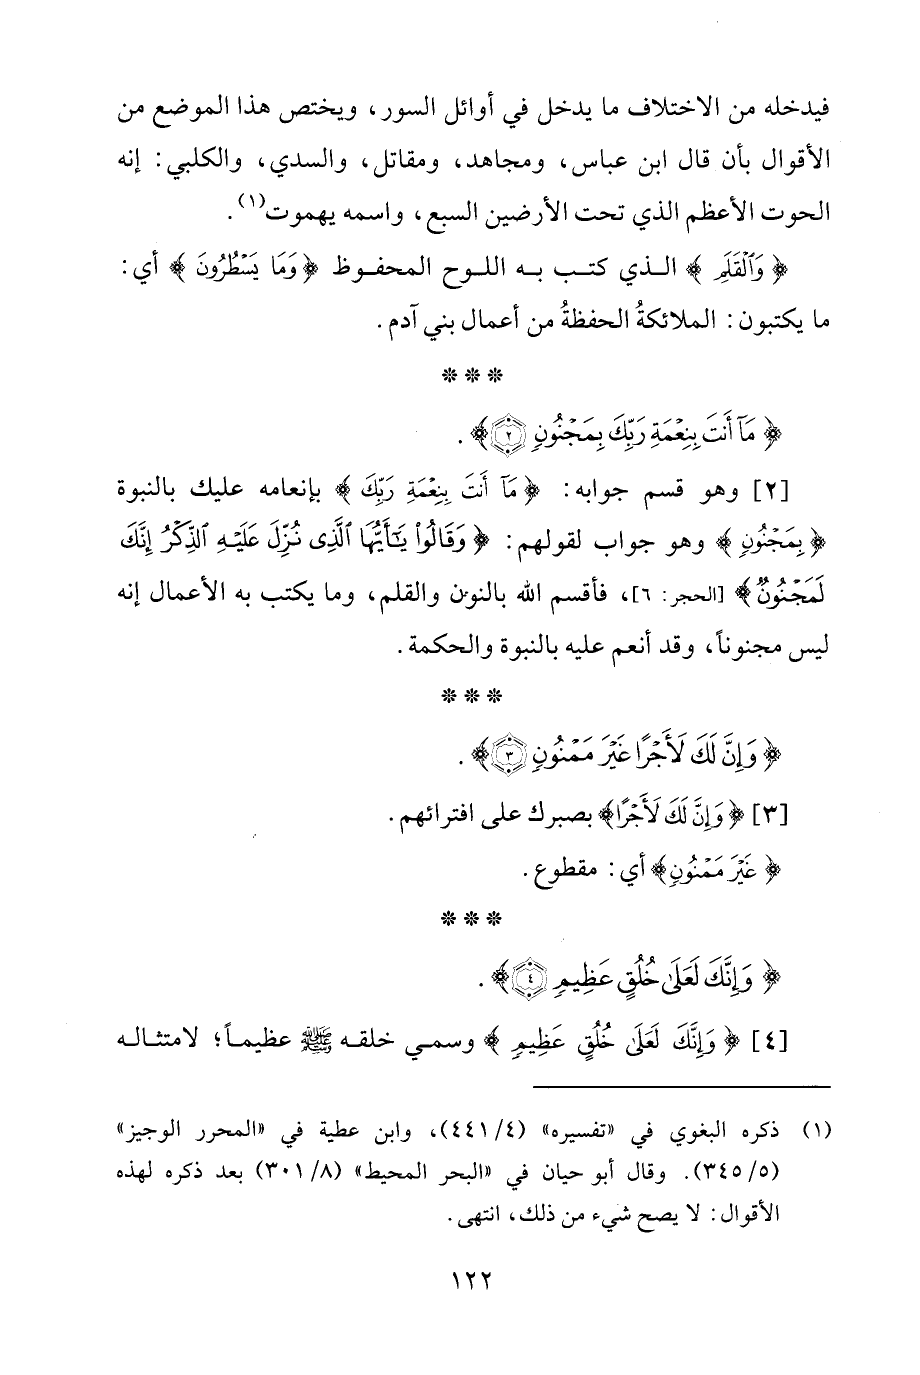 فيدخله من الاختلاف ما يدخل في أوائل السور، ويختص هذا الموضع من
الأقوال بأن قال ابن عباس، ومجاهد، ومقاتل، والسدي، والكلبي: إنه
الحوت الأعظم الذي تحت الأرضين السبع، واسمه يهموت(١).
﴿ وَٱلْقَلَمِ ﴾ الـذي كتـب بـه اللـوح المحفـوظ ﴿ وَمَا يَسْطُرُونَ ﴾ أي:
ما يكتبون: الملائكةُ الحفظةُ من أعمال بني آدم.
* * *
﴿ مَآ أَنتَ بِنِعْمَةِ رَبِّكَ بِمَجْنُونٍ ٢ ﴾.
[٢] وهو قسم جوابه: ﴿ مَآ أَنتَ بِنِعْمَةِ رَبِّكَ ﴾ بإنعامه عليك بالنبوة
﴿ بِمَجْنُونٍ ﴾ وهو جواب لقولهم: ﴿ وَقَالُوا۟ يَٰٓأَيُّهَا ٱلَّذِى نُزِّلَ عَلَيْهِ ٱلذِّكْرُ إِنَّكَ
لَمَجْنُونٌ ﴾ [الحجر: ٦]، فأقسم الله بالنون والقلم، وما يكتب به الأعمال إنه
ليس مجنوناً، وقد أنعم عليه بالنبوة والحكمة.
* * *
﴿ وَإِنَّ لَكَ لَأَجْرًا غَيْرَ مَمْنُونٍ ٣ ﴾.
[٣] ﴿ وَإِنَّ لَكَ لَأَجْرًا ﴾ بصبرك على افترائهم.
﴿ غَيْرَ مَمْنُونٍ ﴾ أي: مقطوع.
* * *
﴿ وَإِنَّكَ لَعَلَىٰ خُلُقٍ عَظِيمٍ ٤ ﴾.
[٤] ﴿ وَإِنَّكَ لَعَلَىٰ خُلُقٍ عَظِيمٍ ﴾ وسمي خلقه ﷺ عظيماً؛ لامتثاله
(١) ذكره البغوي في «تفسيره» (٤/ ٤٤١)، وابن عطية في «المحرر الوجيز»
(٥/ ٣٤٥). وقال أبو حيان في «البحر المحيط» (٨/ ٣٠١) بعد ذكره لهذه
الأقوال: لا يصح شيء من ذلك، انتهى.
١٢٢